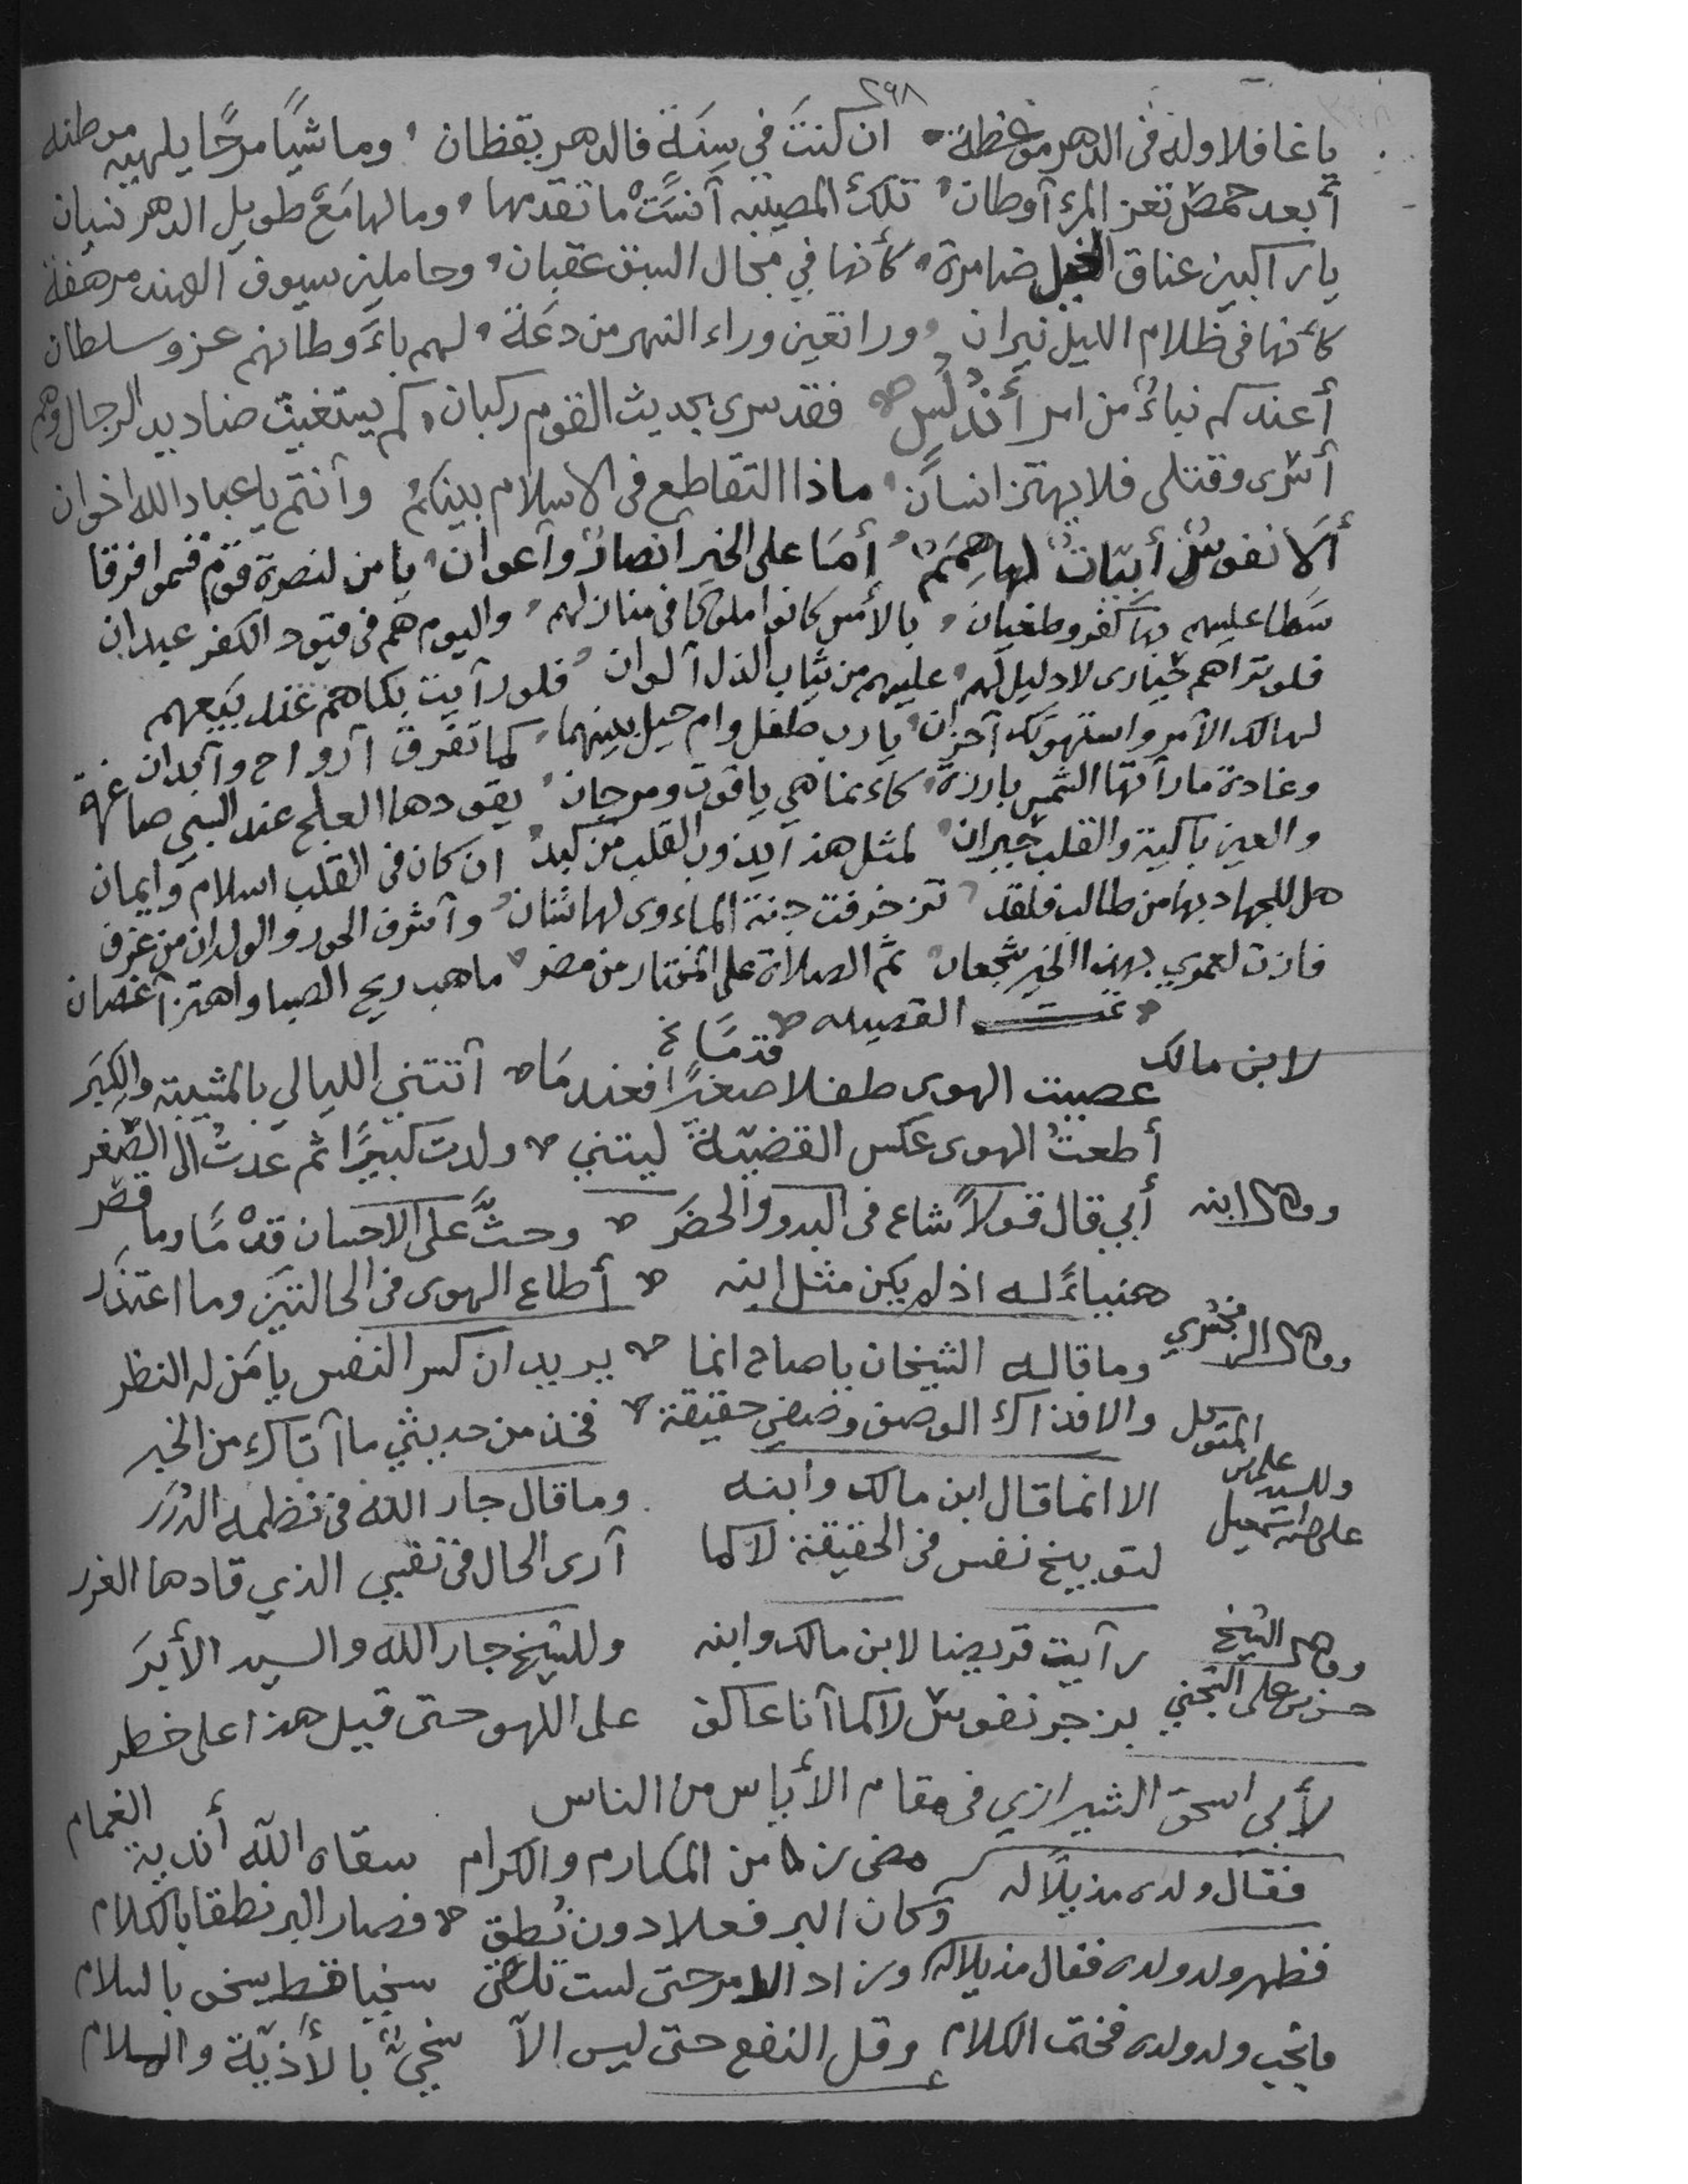 ٢٩٨
يا غافلا وله فى الدهر موعظة ان كنتَ في سِنَة فالدهر يقظان ، وماشيًا مرحًا يلهيه موطنه
أبعد حمص تغر المرء آوطان ، تلك المصيبه آنسَتْ ما تقدمها ، وما لها مَعَ طويل الدهر نسيان
يا راكبين عناق الخيل ضامرة ، كأنها في مجال السبق عقبان ، وحاملين سيوف الهند مرهفة
كأنها فى ظلام الليل نيران ، وراتعين وراء النهر من دعَة ، لهم بآوطانهم عز وسلطان
أعندكم نباءٌ من امر أندُلُس فقد سرى بحديث القوم ركبان ، كم يستغيث صناديد الرجال وهم
أسرى وقتلى فلا يهتز انسان ، ماذا التقاطع فى الاسلام بينكم وآنتم يا عباد الله اخوان
ألا نفوسٌ أبيّاتٌ لها هِمَمٌ ، أمَا على الخير آنصارٌ وآعوان ، يا من لنصرة قوم قسموا فرقا
سَطا عليهم بها كفر وطغيان ، بالأمس كانوا ملوكا فى منازلهم ، واليوم هم فى قيود الكفر عبدان
فلو تراهم حيارى لا دليل لهم ، عليهم من ثياب الذل آلوان ، فلو رآيت بكاهم عند بيعهم
لهالك الآمر واستهوتك آحزان ، يا رب طفل وام حيل بينهما ، كما تفرق آرواح وآبدان
وغادة ما رآتها الشمس بارزة ، كاءنما هي ياقوت ومرجان ، يقودها العلج عند السبي صاغرة
والعين باكية والقلب حيران ، لمثل هذ آيذوب القلب من كبد ، ان كان فى القلب اسلام وايمان
هل للجهاد بها من طالب فلقد ، تزخرفت جنة الماءوى لها شان ، وآشرف الحور والولدان من غرف
فازت لعمري بهذا الخير شجعان ، ثم الصلاة على المختار من مضر ، ما هب ريح الصبا واهتز آغصان
تمت القصيده
لابن مالك عصيت الهوى طفلا صغيرًا فعندمَا آتتني الليالي بالمشيبة والكِبَر
قدمًا خ
أطعتُ الهوى عكس القضيّة ليتني ولدت كبيرًا ثم عدتُ الى الصّغر
وقال ابنه أبي قال قولًا شاع فى البدو والحضَر وحثَّ على الاحسان قدْمًا وما قصّر
هنيباءً له اذ لم يكن مثل ابنه أطاع الهوى فى الحالتين وما اعتذَر
وقال الزمخشري وما قاله الشيخان يا صاح انما يريدان كسر النفس يا مَن له النظر
والا فذاك الوصف وصفي حقيقة فخذ من حديثي ما آتاك من الخبر
وللسيد على بن المتوكل على الله اسمعيل الا انما قال ابن مالك وابنه وما قال جار الله فى نظمه الدُرَر
لتوبيخ نفس فى الحقيقة لا كما آرى الحال فى نفسي الذي قادها الغرر
وقال الشيخ رآيت قريضا لابن مالك وابنه وللشيخ جار الله والسيد الأبَرَ
حسن بن على بزجر نفوسٍ لا كما آنا عاكف على اللهو حتى قيل هذا على خطر
لأبي اسحق الشيرازي فى مقام الأياس من الناس
مضى زمن المكارم والكرام سقاه اللّه أندية الغمام
فقال ولده مذيلًا له وكان البر فعلا دون نُطق فصار البر نطقا بالكلام
فظهر ولد ولده فقال مذيلا له وزاد الامر حتى لست تلقى سخيا قط يسخى بالسلام
فانجب ولد ولده فختم الكلام وقل النفع حتى ليس الآ سخيٌّ بالأذيّة والسلام